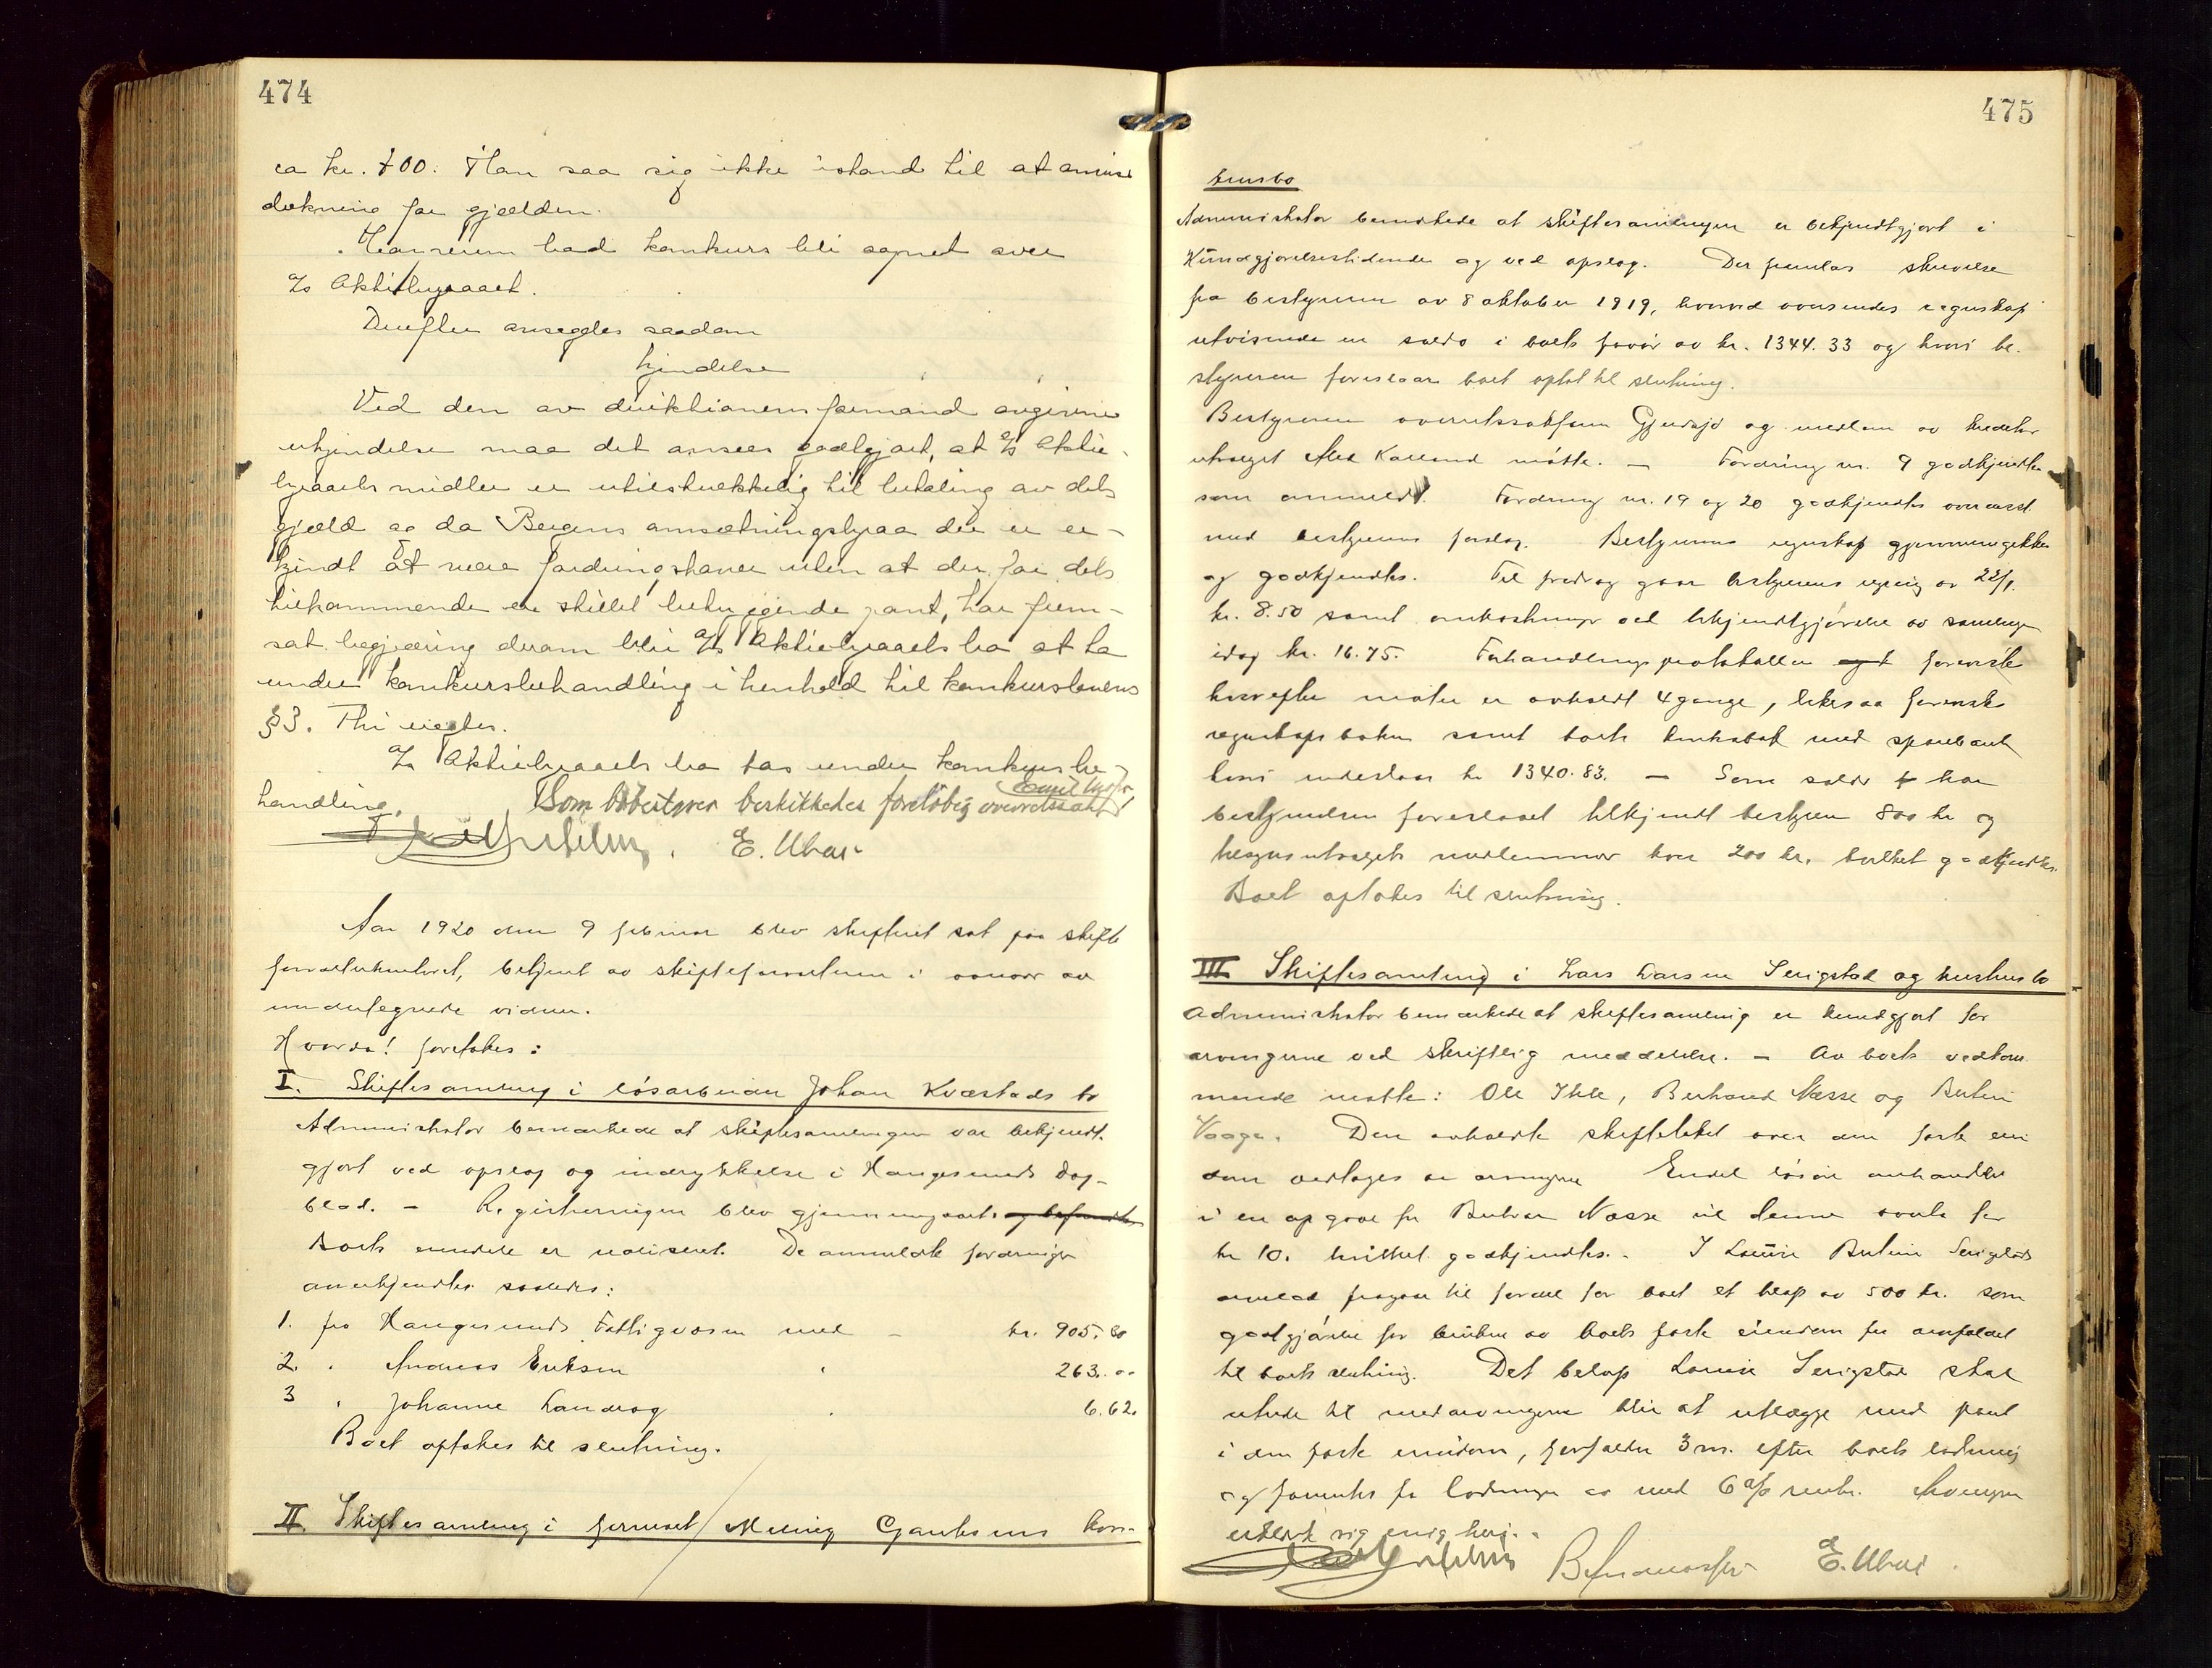 474
ca kr. 700: Han saa sig ikke istand til at anvise
dækning for gjælden.
bad konkurs bli aapnet over
A/s Aktiebyraaet.
Derefter avsagdes saadan
kjendelse
Ved den av direktionens formand avgivne
erkjendelse maa det ansees godtgjort, at A/s Aktie-
byraaets midler er utilstrækkelig til betaling av dets
gjæld og da Bergens omsætningsbyraa der er er-
kjendt at være fordringshaver uten at der for dets
tilkommende er stillet betryggende pant, har frem-
sat begjæring derom blir A/s Aktiebyraaets bo at ta
under konkursbehandling i henhold til konkurslovens
§3. Thi eragtes.
A/s Aktiebyraaets bo tas under konkursbe-
handling. Som bobestyrer beskikkedes foreløbig overretssakf.
E. Ubøe
Aar 1920 den 9 februar blev skifteret sat paa skifte
forvalterkontoret, betjent av skifteforvalteren i nævær av
undertegnede vidner.
Hvorda! foretokes:
I. Skiftesamling i løsarbeider Johan Kvæstads bo
Administrator bemærkede at skiftesamlingen var bekjendt-
gjort ved opslag og indrykkelse i Haugesunds Dag-
blad. - Registreringen blev gjennemgaat. og befandtes
Boets eiendele er realiseret. De anmeldte fordringer
anerkjendtes saaledes:
1. fra Haugesunds Fattigvæsen med - kr. 905.80
2. " Andreas Eriksen " 263.00
3 " Johanne Landaag " 6.62.
Boet optokes til slutning.
II. Skiftesamling i firmaet Meling Gautesens kon-
475
kursbo
Administrator bemerkede at skiftesamlingen er bekjendtgjort i
Kundgjørelsestidende og ved opslag. Der fremlaa skrivelse
fra bestyreren av 8 oktober 1919, hvorved oversendes regnskap
utvisende en saldo i boets favør av kr. 1344.33 og hvori be-
styreren foreslaar boet optat til slutning.
Bestyreren overretssakfører Gjerdsjø og medlem av kreditor
utvalget Alex Kalland møtte. - Fordring nr. 9 godkjendtes
som anmeldt. Fordring nr. 19 og 20 godkjendtes overensst.
med bestyrerens forslag. Bestyrerens regnskap gjennemgikkes
og godkjendtes. Til fradrag gaar bestyrerens regning av 22/1.
kr. 8.50 samt omkostninger ved bekjendtgjørelse av samlingen
idag kr. 16.75. Forhandlingsprotokollen forevistes
hvorefter møter er avholdt 4 gange, likesaa forevistes
regnskapsboken samt boets bankbok med sparebanken
hvori indestaar kr 1340.83. - Som salær har
bestyrelsen foreslaaet tilkjendt bestyreren 800 kr og
tilsynsutvalgets medlemmer hver 200 kr. hvilket godkjendtes.
Boet optokes til slutning.
III. Skiftesamling i Lars Larsen Serigstad og hustrus bo
Administrator bemærkede at skiftesamling er kundgjort for
arvingerne ved skriftlig meddelelse. - Av boets vedkom-
mende møtte: Ole Ihle, Berhard Næsse og Bertin
Vaage. Den avholdte skiftetakst over den faste ein
dom vedtages av arvingerne Endel løsøre omhandlet
i en opgave fra Næsse vil denne svare for
kr 10. hvilket godkjendtes. - I Louise Serigstads
arvelod fragaar til fordel for boet et beløp av 500 kr. som
godtgjørelse for bruken av boets faste eiendom fra
til boets slutning. Det beløp Louise Serigstad skal
utrede til medarvingerne blir at utlægge med pant
i den faste eiendom, forfalder 3 m. efter boets lodning
og forrentes fra lodningen av med 6 % rente. Arvingerne
erklærte sig enig heri. -
E. Ubøe